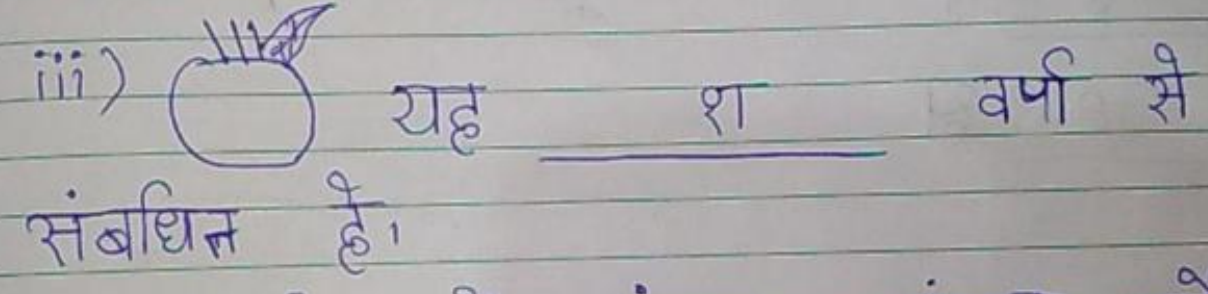 iii) यह श वर्पा से
संबधित है।